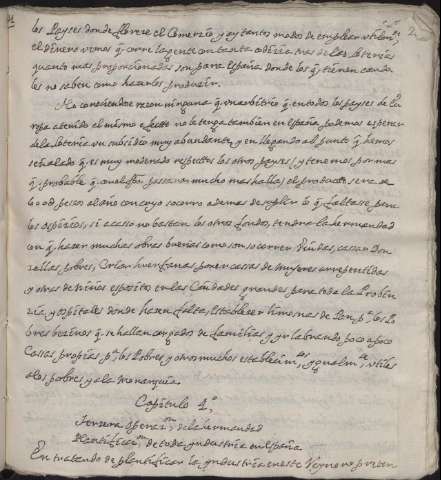 los Payses donde florece el Comercio, y ay tantos modos de emplear utilmte
el dinero vemos q corre la gente con tanta codicia tras de las loterias
quanto mas proporcionadas son para España donde los q tienen cauda
les no saben como hacerlos producir.
No conociendose razon ninguna q un arbitrio q en todos los payses de Eu
ropa a tenido el mismo efecto no le tenga tambien en España podemos esperar
de la loteria un subsidio muy abundante, y en llegando al punto q hemos
señalado q es muy moderado respecto a los otros payses, y tenemos por mas
q probable q aun passara mucho mas halla, el producto sera de
600d pesos al año con cuyo socorro ademas de suplir lo q faltase para
los ospicios, si acaso no bastan los otros fondos, tendra la hermandad
con q hacer muchas obras buenas como son socorrer Viudas, casar Don
zellas pobres, Criar huerfanas poner cassas de mugeres arrepentidas
y otras de niños espositos en las Ciudades grandes para toda la Probin
zia, y ospitales donde hazen falta, establecer limosnas de Pan pa los Po
bres bezinos q se hallan cargados de familias y yr labrando poco a poco
Cassas propias pa los Pobres y otros muchos establecimtos ygualmte utiles
a los pobres y a la Monarquia.
Capitulo 4o
Tercera operacion de la ermandad
Plantificacion de toda yndustria en España
En tratando de plantificar la yndustria en este Reyno no preten